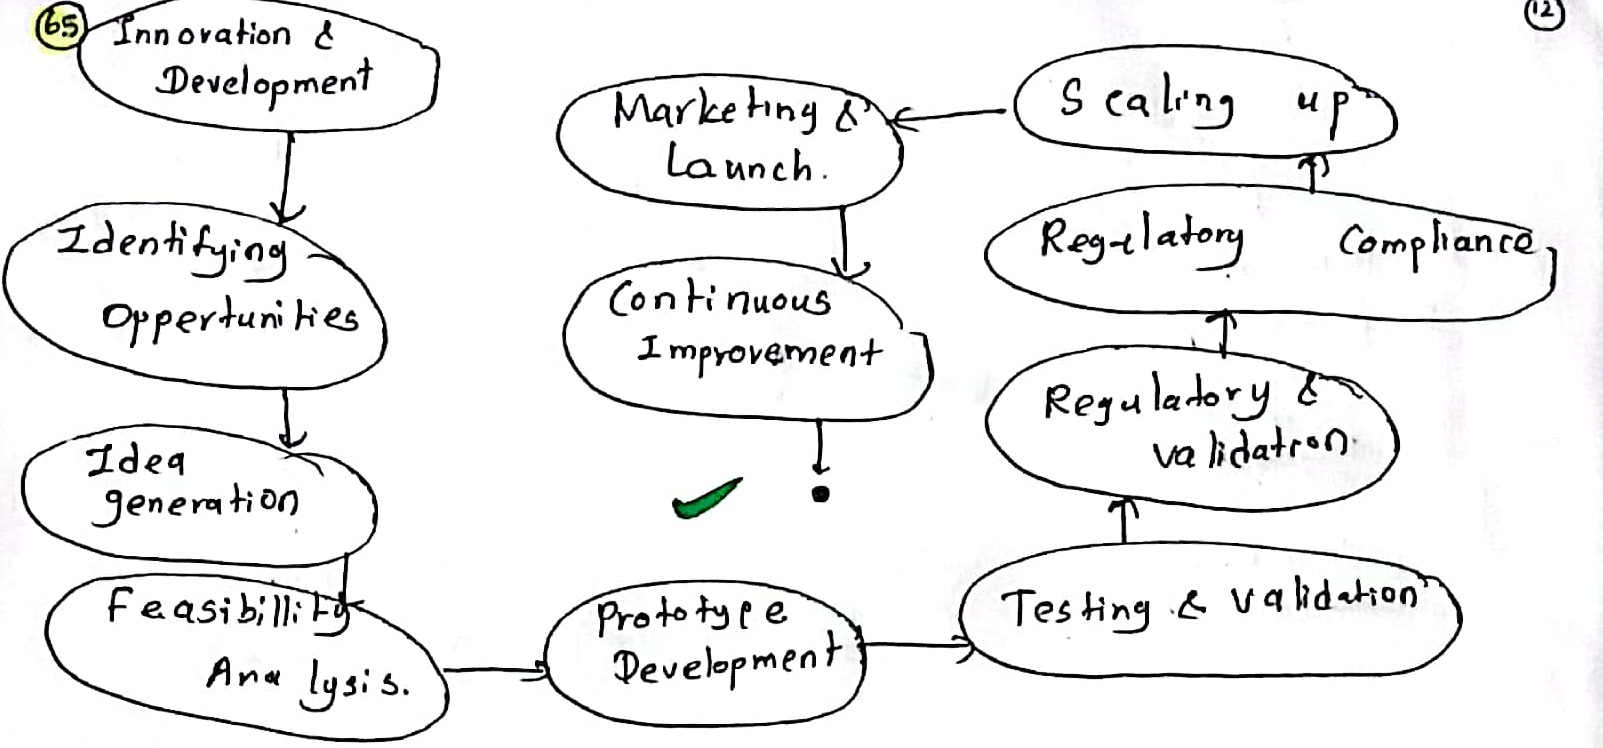 65
12
Innovation &
Development
Identifying
Oppertunities
Idea
generation
Feasibillity
Analysis.
Prototype
Development
Testing & validation
Regulatory &
validation
Regulatory Compliance
Scaling up
Marketing &
Launch.
Continuous
Improvement